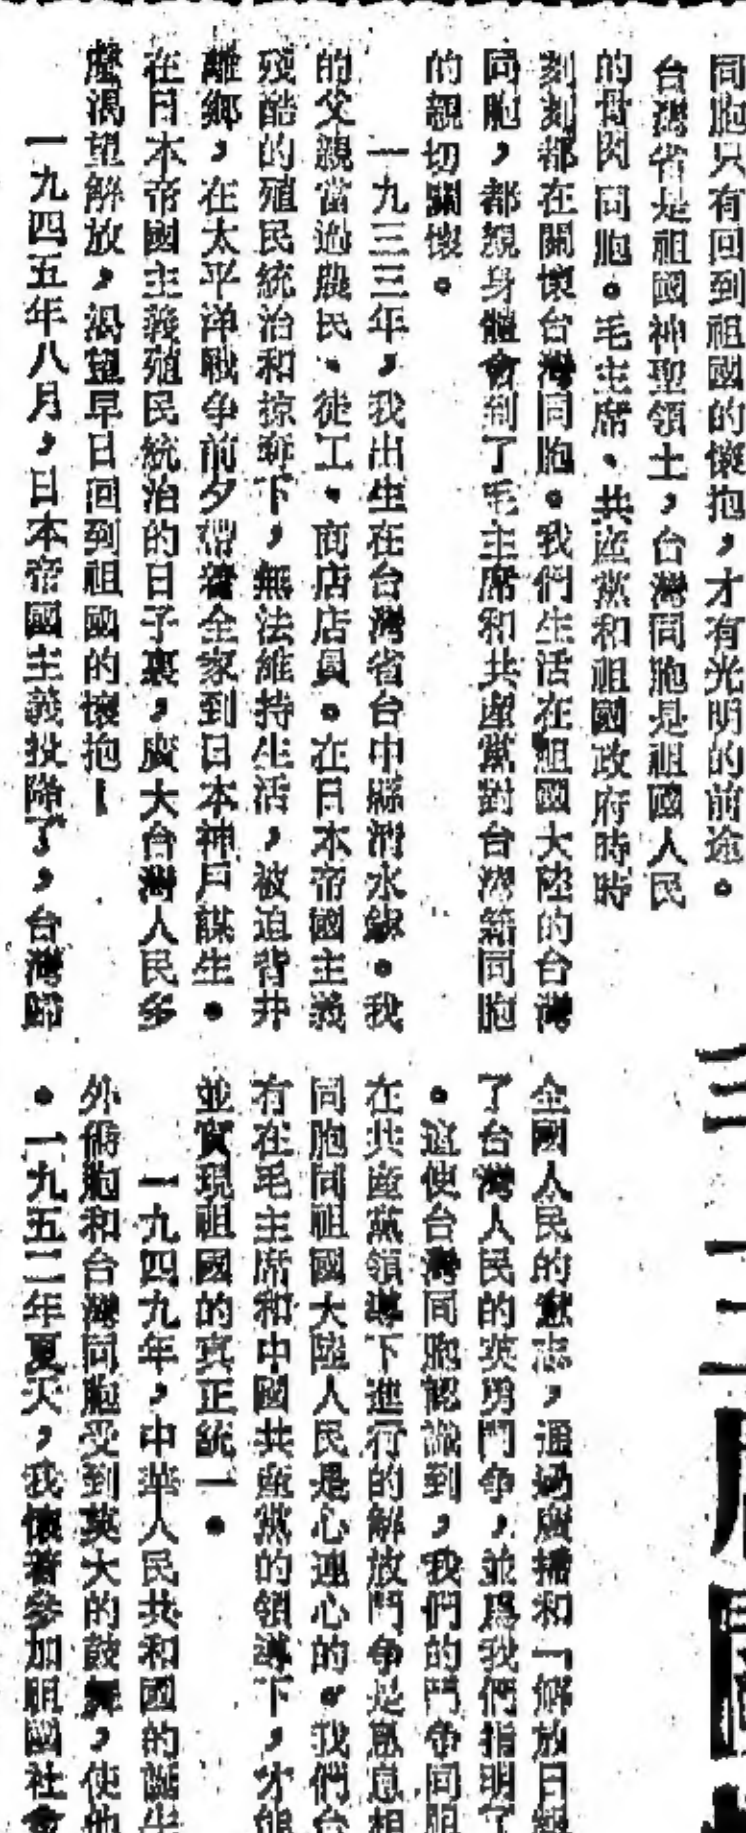 同胞只有回到祖國的懷抱，才有光明的前途。
台灣省是祖國神聖領土，台灣同胞是祖國人民
的骨肉同胞。毛主席、共產黨和祖國政府時時
刻刻都在關懷台灣同胞。我們生活在祖國大陸的台灣
同胞，都親身體會到了毛主席和共產黨對台灣籍同胞
的親切關懷。
一九三三年，我出生在台灣省台中縣清水鎮。我
的父親當過農民、徒工、商店店員。在日本帝國主義
殘酷的殖民統治和掠奪下，無法維持生活，被迫背井
離鄉，在太平洋戰爭前夕帶着全家到日本神戶謀生。
在日本帝國主義殖民統治的日子裏，廣大台灣人民多
麼渴望解放，渴望早日回到祖國的懷抱！
一九四五年八月，日本帝國主義投降了，台灣歸
全國人民的意志，通過廣播和「解放日報
了台灣人民的英勇鬥争，並爲我們指明了
。這使台灣同胞認識到，我們的鬥争同祖
在共產黨領導下進行的解放鬥争是息息相
同胞同祖國大陸人民是心連心的。我們台
有在毛主席和中國共產黨的領導下，才能
並實現祖國的真正統一。
一九四九年，中華人民共和國的誕生
外僑胞和台灣同胞受到莫大的鼓舞，使他
。一九五二年夏天，我懷着參加祖國社會